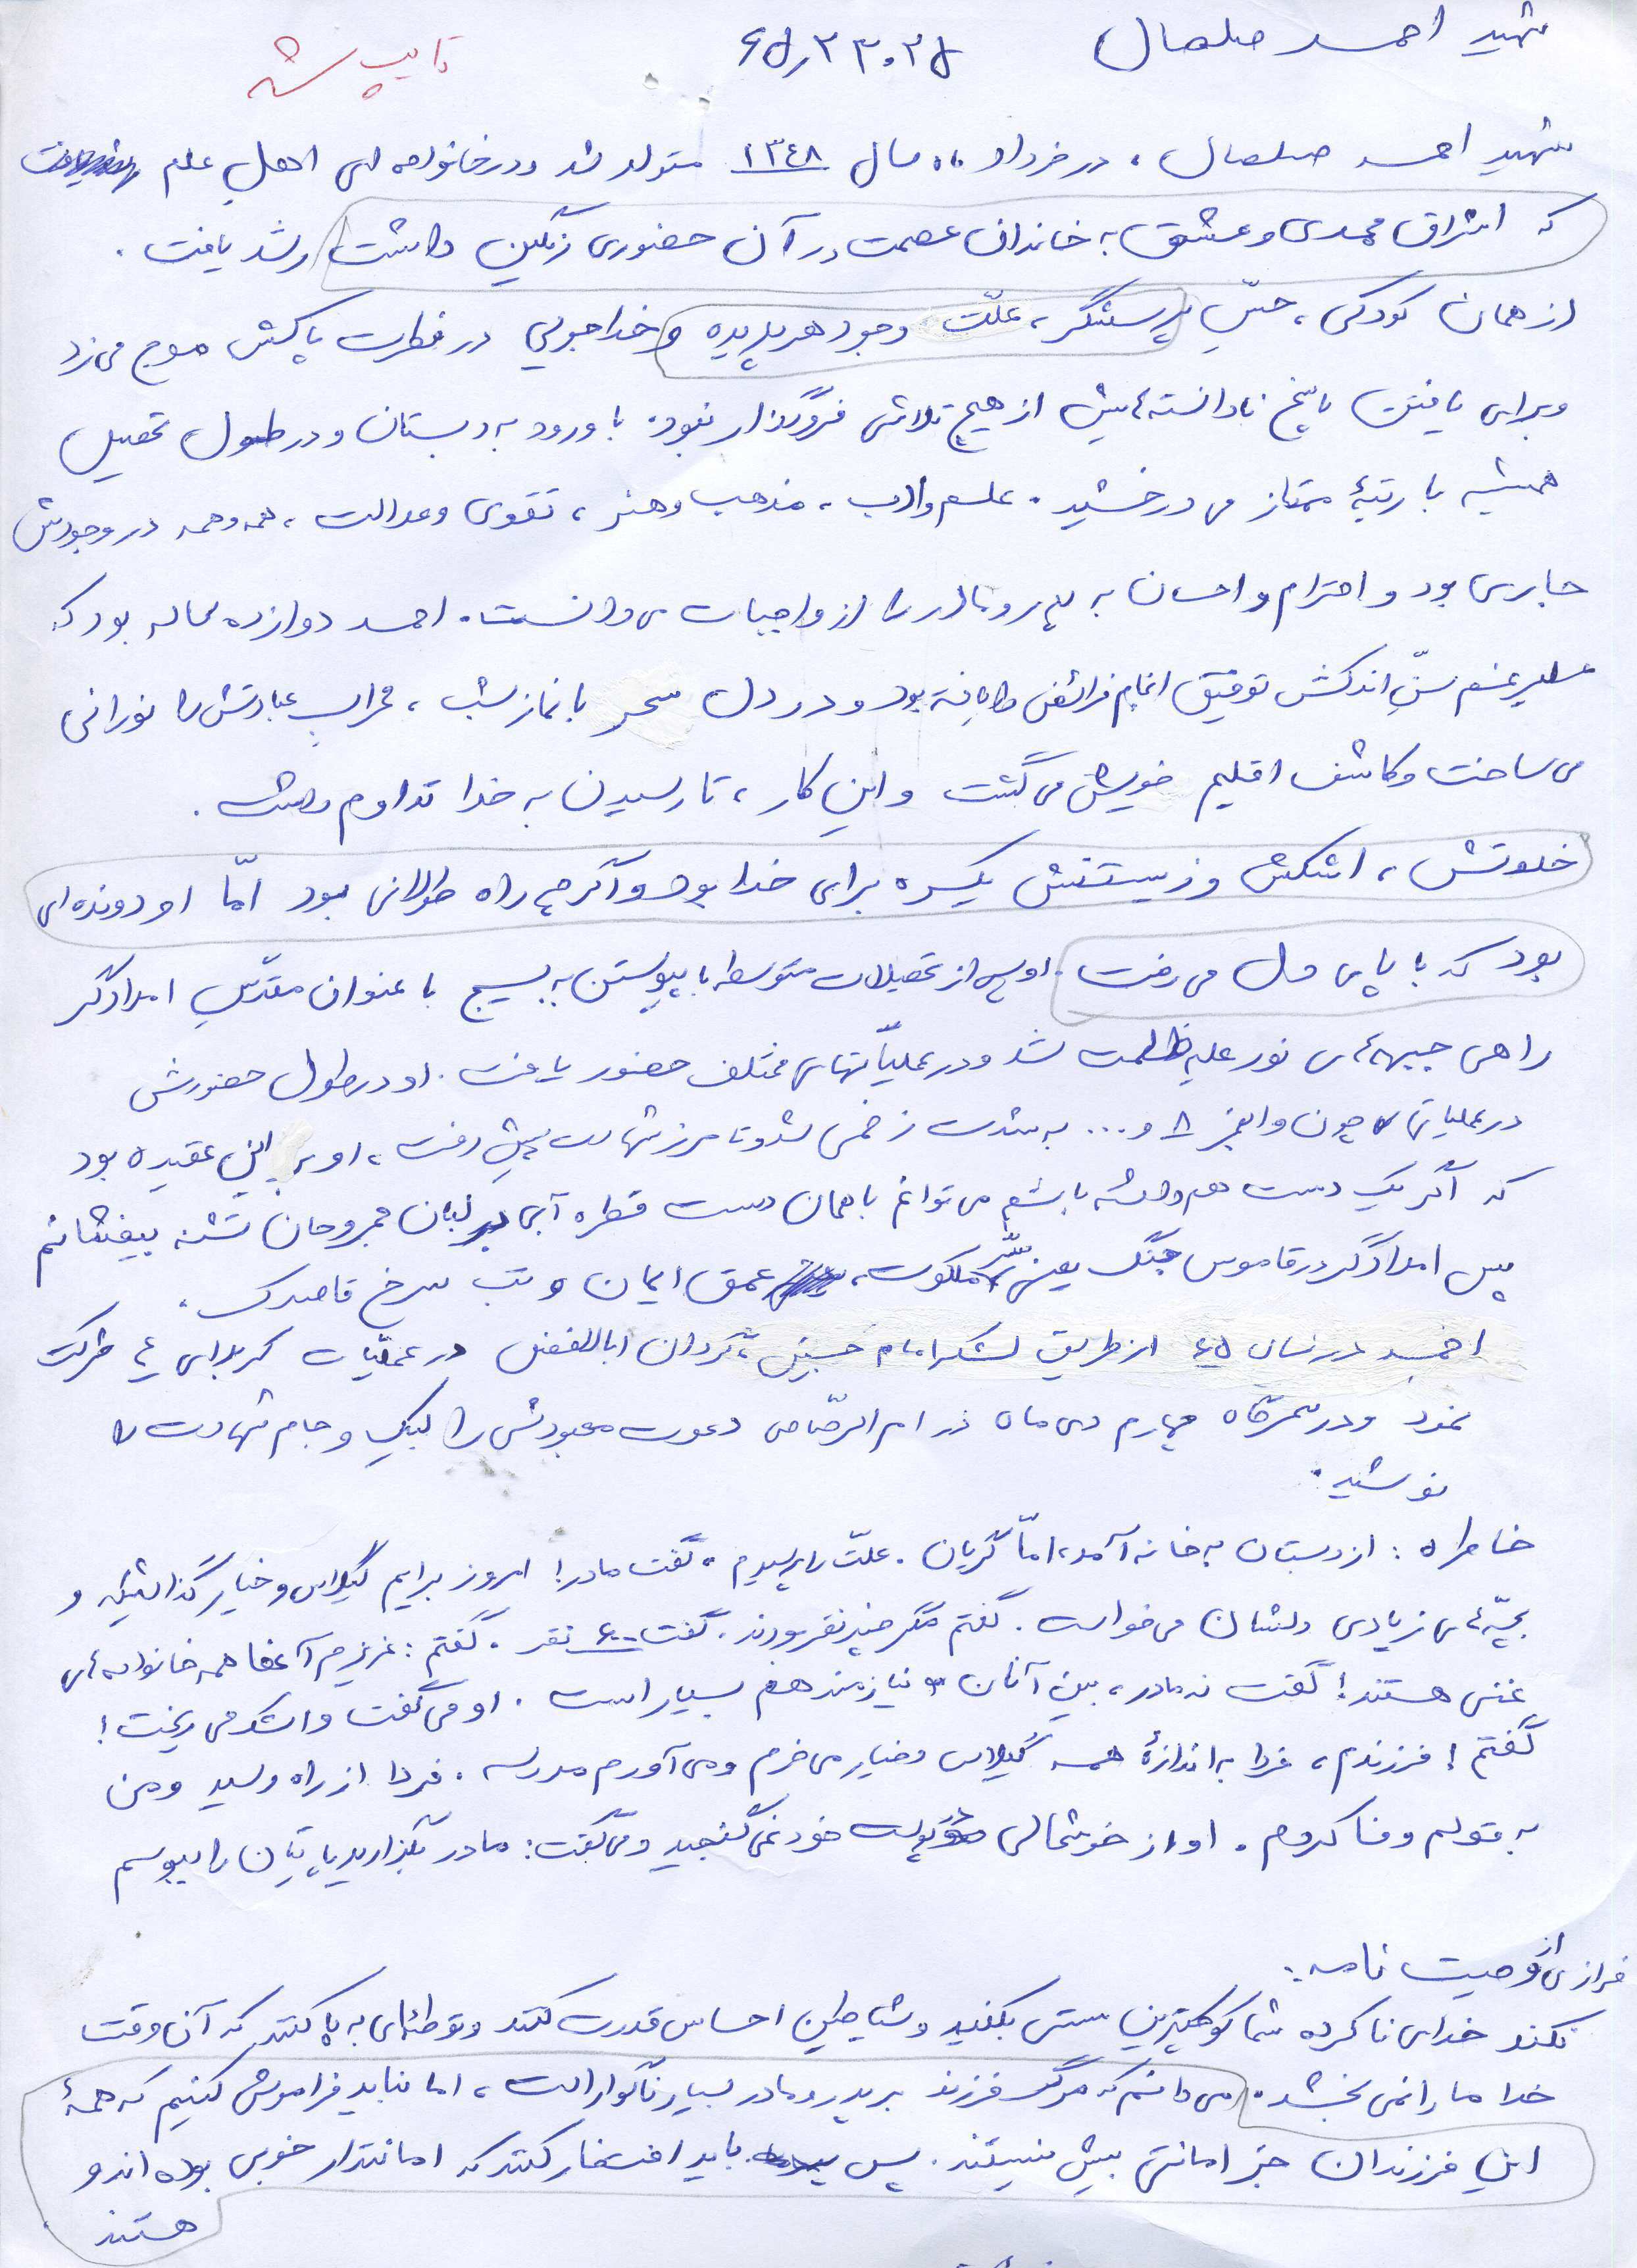 شهید احمد صلصال ۶۵۰۲۳۰۲۵
تایپ شد
شهید احمد صلصال، در خرداد سال ۱۳۴۸ متولد شد و در خانواده ای اهل علم
که اشراق محمدی و عشق به خاندان عصمت در آن حضوری رنگین داشت رشد یافت.
از همان کودکی، حسّ پرسشگر، علّت وجود هر پدیده و خداجویی در فطرت پاکش موج می زد
و برای یافتن پاسخ نادانسته هایش از هیچ تلاشی فروگذار نبود. با ورود به دبستان و در طول تحصیل
همیشه با رتبهٔ ممتاز می درخشید. علم و ادب، مذهب و هنر، تقوی و عدالت، همه و همه در وجودش
جاری بود و احترام و احسان به پدر و مادر را از واجبات می دانست. احمد دوازده ساله بود که
علیرغم سنّ اندکش توفیق اتمام فرائض را یافته بود و در دل سحر با نماز شب، محراب عبادتش را نورانی
می ساخت و کاشف اقلیم خویش می گشت و این کار، تا رسیدن به خدا تداوم داشت.
خلوتش، اشکش و زیستنش یکسره برای خدا بود و اگر چه راه طولانی بود امّا او دونده ای
بود که با پای دل می رفت. او پس از تحصیلات متوسطه با پیوستن به بسیج با عنوان مقدّس امدادگر
راهی جبهه های نور علیه ظلمت شد و در عملیّاتهای مختلف حضور یافت. او در طول حضورش
در عملیاتها چون والفجر ۸ و... به شدت زخمی شد و تا مرز شهادت پیش رفت، او بر این عقیده بود
که اگر یک دست هم داشته باشم می توانم با همان دست قطره آبی بر لبان مجروحان تشنه بیفشانم
پس امدادگر در قاموس جنگ یعنی سِّر ملکوت، عمق ایمان و تب سرخ قاصدک.
احمد در سال ۶۵ از طریق لشکر امام حسین، گردان اباالفضل در عملیّات کربلای ۴ شرکت
نمود و در سحرگاه چهارم دی ماه در ام الرصاص دعوت معبودش را لبیک و جام شهادت را
نوشید.
خاطره: از دبستان به خانه آمد، امّا گریان. علّت را پرسیدم. گفت مادر! امروز برایم گیلاس و خیار گذاشتید و
بچّه های زیادی دلشان می خواست. گفتم مگر چند نفر بودند. گفت ۶۰۰ نفر. گفتم: عزیزم آنها همه خانواده های
غنی هستند! گفت نه مادر، بین آنان نیازمند هم بسیار است. او می گفت و اشک می ریخت!
گفتم! فرزندم، فردا به اندازهٔ همه گیلاس و خیار می خرم و می آورم مدرسه. فردا از راه رسید و من
به قولم وفا کردم. او از خوشحالی در پوست خود نمی گنجید و می گفت: مادر بگذارید پایتان را ببوسم
فرازی از وصیت نامه:
نکند خدای ناکرده شما کوچکترین سستی بکنید و شیاطین احساس قدرت کنند و توطئه ای به پا کنند که آن وقت
خدا ما را نمی بخشد. می دانم که مرگ فرزند بر پدر و مادر بسیار ناگوار است، اما نباید فراموش کنیم که همهٔ
این فرزندان جز امانتی بیش نیستند. پس باید افتخار کنند که امانتدار خوبی بوده اند و
هستند